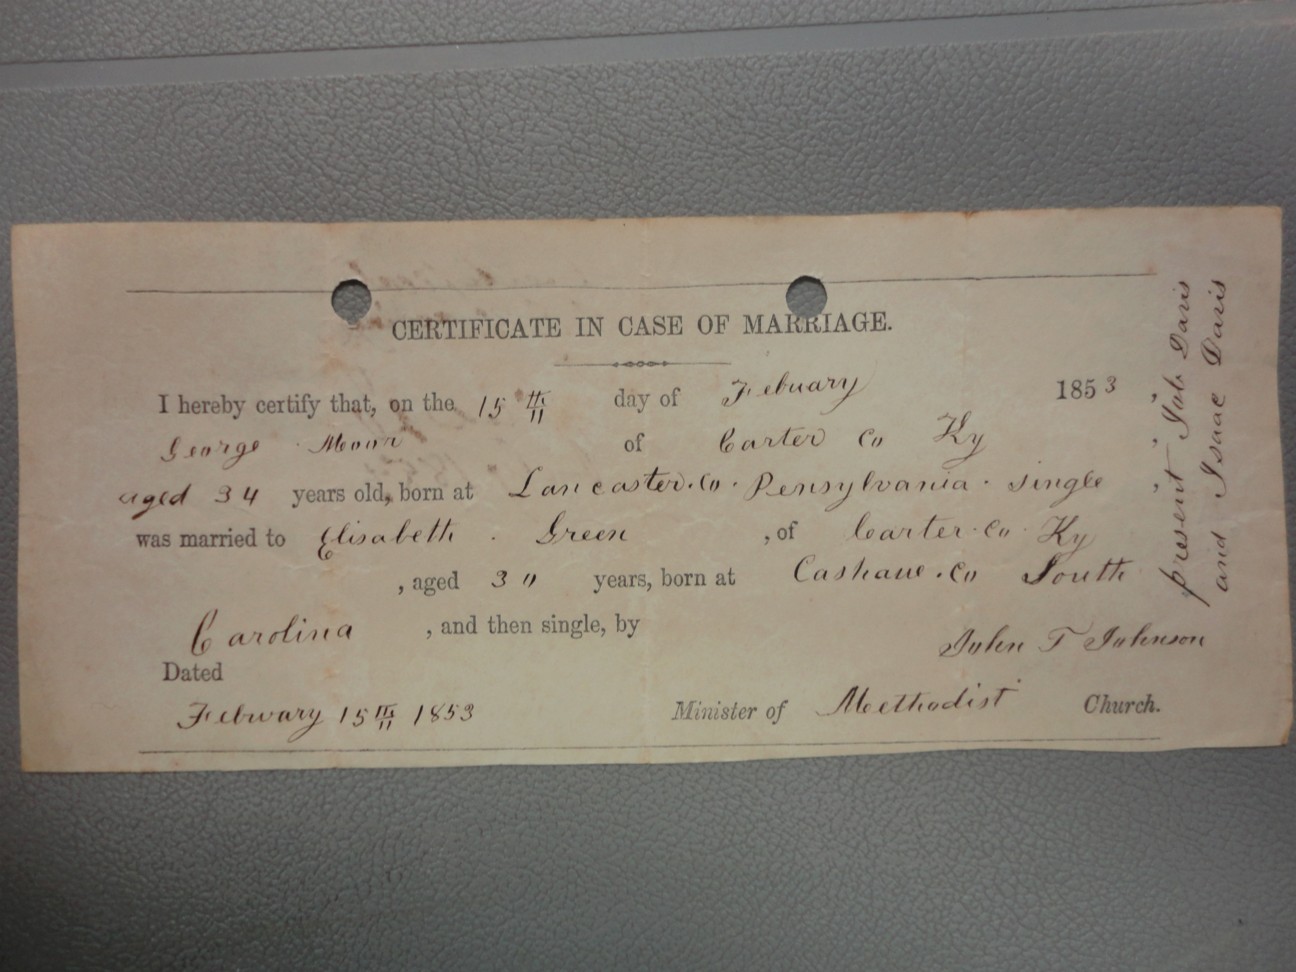 CERTIFICATE IN CASE OF MARRIAGE.
I hereby certify that, on the 15th day of Febuary 1853
George Moor of Carter co Ky
aged 34 years old, born at Lancaster.co. Pensylvania. single
was married to Elisabeth. Green, of Carter.co Ky
, aged 30 years, born at Cashaue.co South
Carolina, and then single, by
John T Johnson
Dated
Febuary 15th 1853 Minister of Methodist Church.
present Job Daris
and Isaac Daris